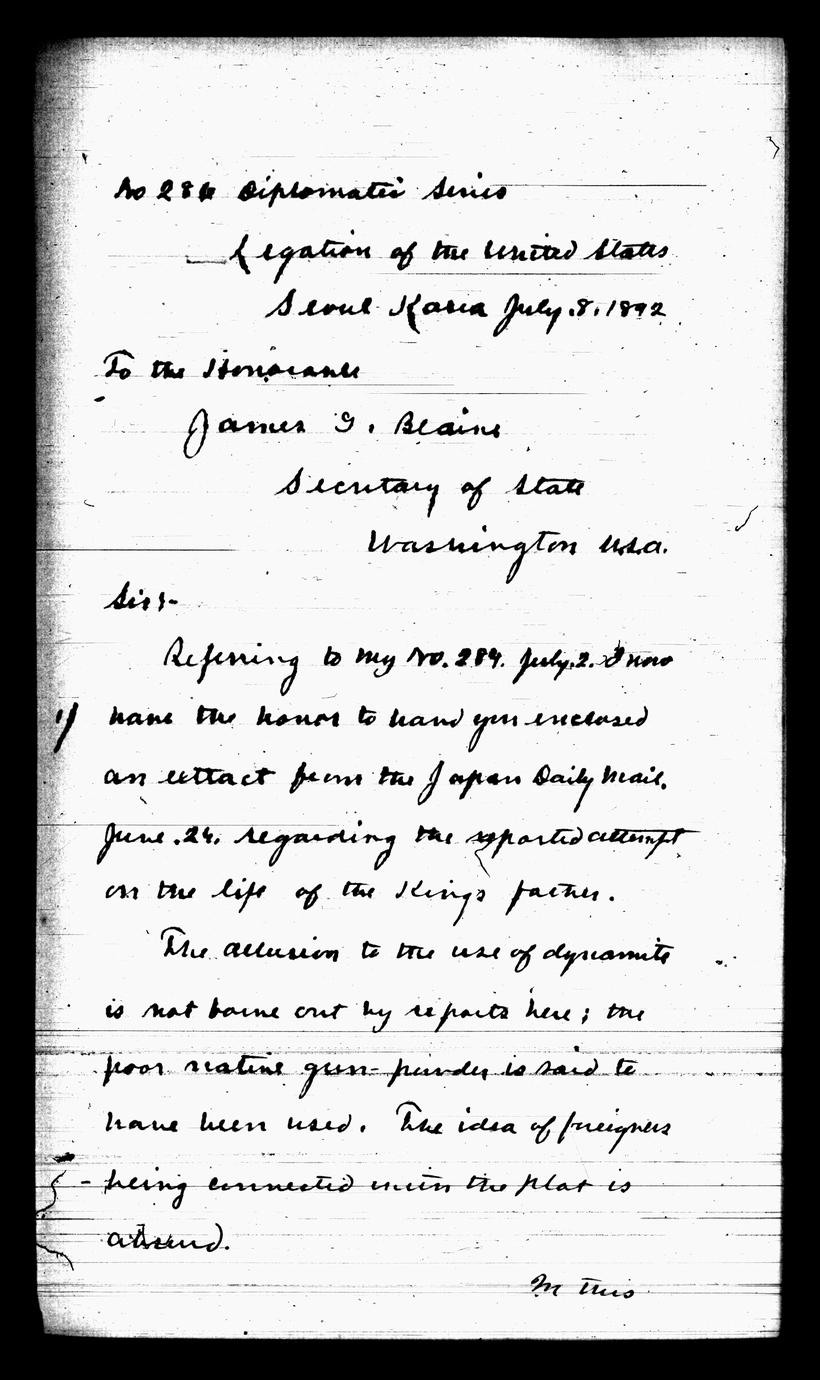 No 286 Diplomatic Series
Legation of the United States
Seoul Korea July. 8. 1892
To the Honorable
James G. Blaine
Secretary of State
Washington U.S.A.
Sir:-
Referring to my No. 284. July. 2. I now
1/ have the honor to hand you enclosed
an extract from the Japan Daily Mail,
June. 24. regarding the reported attempt
on the life of the Kings father.
The allusion to the use of dynamite
is not borne out by reports here; the
poor native gun-powder is said to
have been used. The idea of foreigners
being connected with the plot is
absurd.
In this